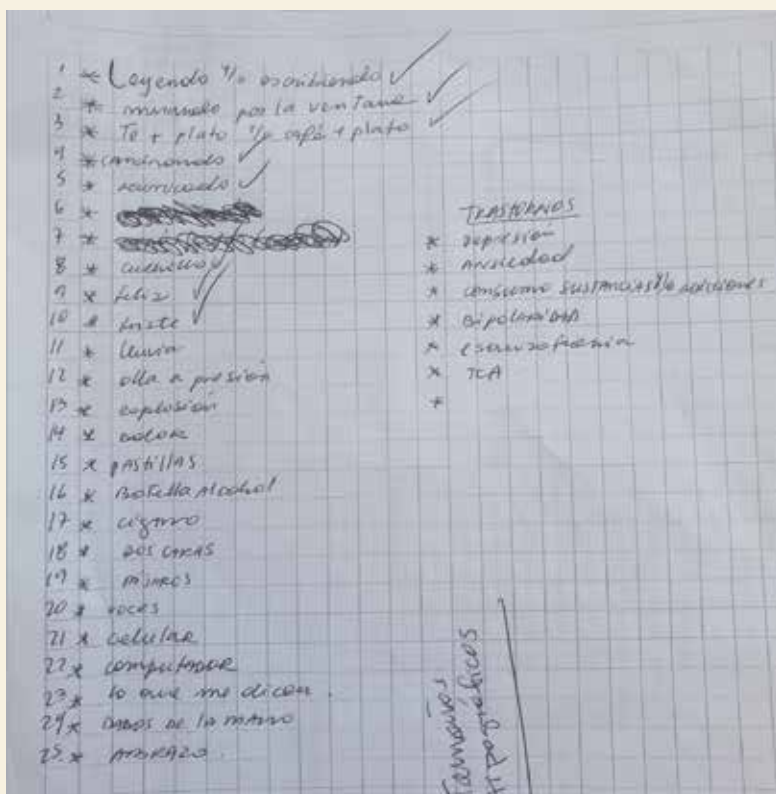 1 * Leyendo y/o escribiendo ✓
2 * mirando por la ventana ✓
3 * Té + plato y/o café + plato ✓
4 * caminando ✓
5 * acurrucado ✓
6 *
7 *
8 * cuchillo ✓
9 * feliz ✓
10 * triste ✓
11 * lluvia
12 * olla a presión
13 * explosión
14 *
15 * pastillas
16 * Botella Alcohol
17 * cigarro
18 * DOS CARAS
19 *
20 * voces
21 * celular
22 * computador
23 * lo que me dicen.
24 * DADOS DE la mano
25. * ABRAZO.
TRASTORNOS
* Depresión
* Ansiedad
* consumo SUSTANCIAS y/o adicciones
* Bipolaridad
* esquizofrenia
* TCA
*
Tamaños
tipográficos